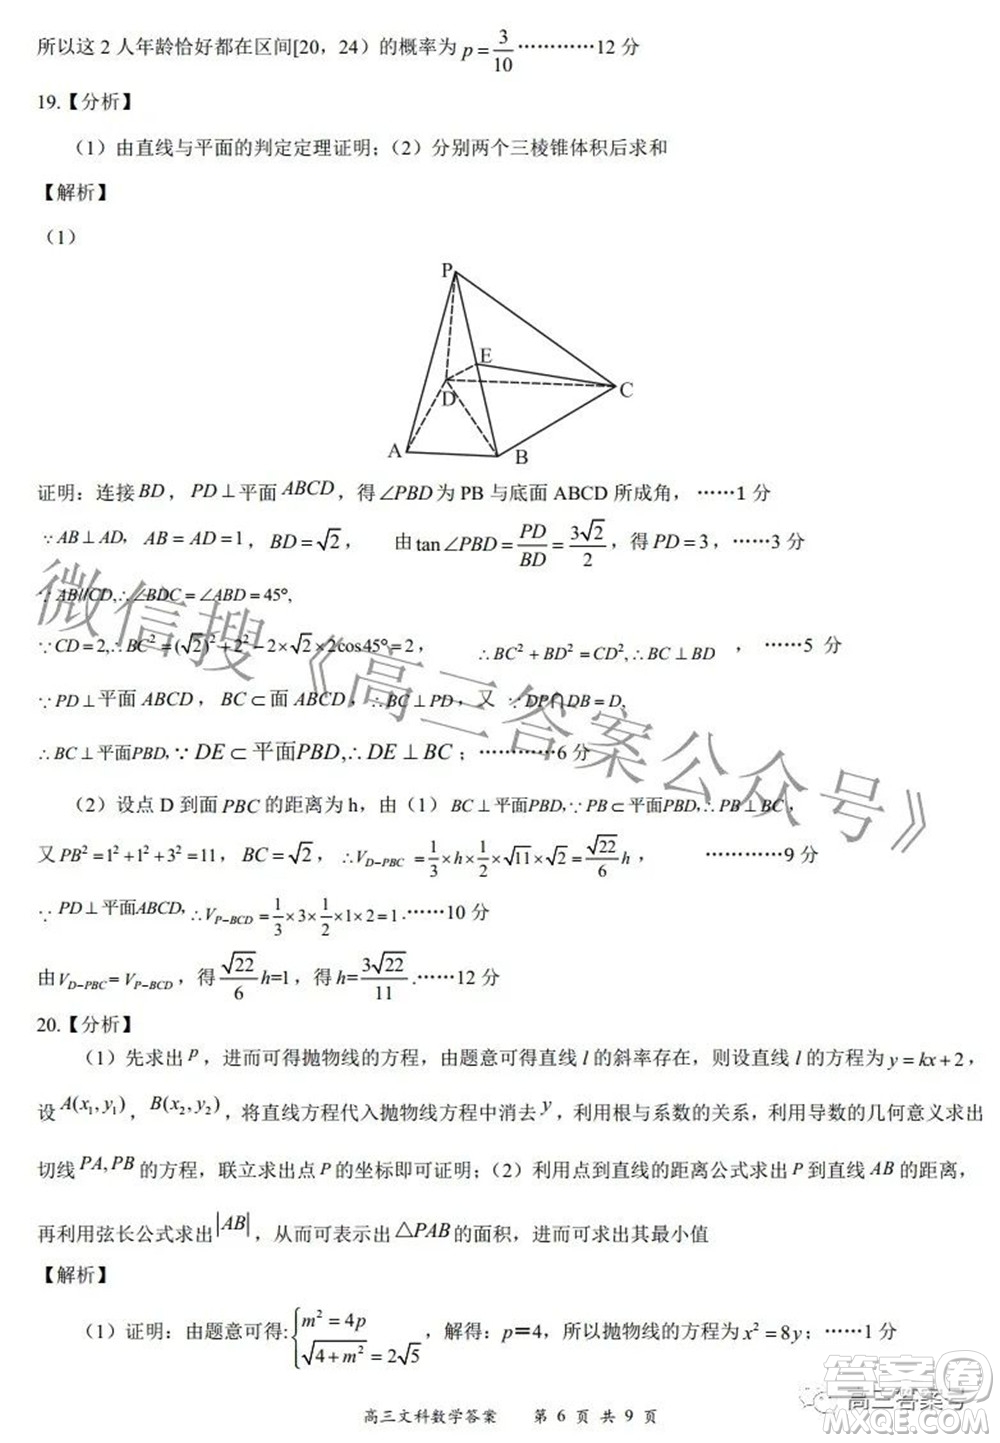 所以这 2 人年龄恰好都在区间[20，24）的概率为 p = 3/10 …………12 分
19.【分析】
（1）由直线与平面的判定定理证明；（2）分别两个三棱锥体积后求和
【解析】
（1）
P
E
C
D
A
B
证明：连接 BD，PD⊥平面 ABCD，得∠PBD 为 PB 与底面 ABCD 所成角，……1 分
∵AB⊥AD，AB = AD = 1，BD = √2， 由 tan∠PBD = PD/BD = 3√2/2，得 PD = 3，……3 分
∵AB//CD,∴∠BDC = ∠ABD = 45°,
∵CD = 2,∴BC² = (√2)² + 2² − 2×√2×2cos45° = 2， ∴BC² + BD² = CD²,∴BC⊥BD ，……5 分
∵PD⊥平面 ABCD，BC⊂面 ABCD，∴BC⊥PD，又 ∵DP∩DB = D,
∴BC⊥平面PBD,∵DE⊂平面PBD,∴DE⊥BC；…………6 分
（2）设点 D 到面 PBC 的距离为 h，由（1）BC⊥平面PBD,∵PB⊂平面PBD,∴PB⊥BC，
又 PB² = 1² + 1² + 3² = 11，BC = √2，∴V_{D−PBC} = 1/3 × h × 1/2 × √11 × √2 = √22/6 h， …………9 分
∵PD⊥平面ABCD,∴V_{P−BCD} = 1/3 × 3 × 1/2 × 1 × 2 = 1.……10 分
由 V_{D−PBC} = V_{P−BCD}，得 √22/6 h=1，得 h= 3√22/11 .……12 分
20.【分析】
（1）先求出 p，进而可得抛物线的方程，由题意可得直线 l 的斜率存在，则设直线 l 的方程为 y = kx + 2，
设 A(x₁, y₁)，B(x₂, y₂)，将直线方程代入抛物线方程中消去 y，利用根与系数的关系，利用导数的几何意义求出
切线 PA, PB 的方程，联立求出点 P 的坐标即可证明；（2）利用点到直线的距离公式求出 P 到直线 AB 的距离，
再利用弦长公式求出 |AB|，从而可表示出 △PAB 的面积，进而可求出其最小值
【解析】
（1）证明：由题意可得: { m² = 4p  √(4 + m²) = 2√5 ，解得：p＝4，所以抛物线的方程为 x² = 8y；……1 分
高三文科数学答案 第 6 页 共 9 页
微信搜《高三答案公众号》
高三答案号
答案圈
MXQE.COM